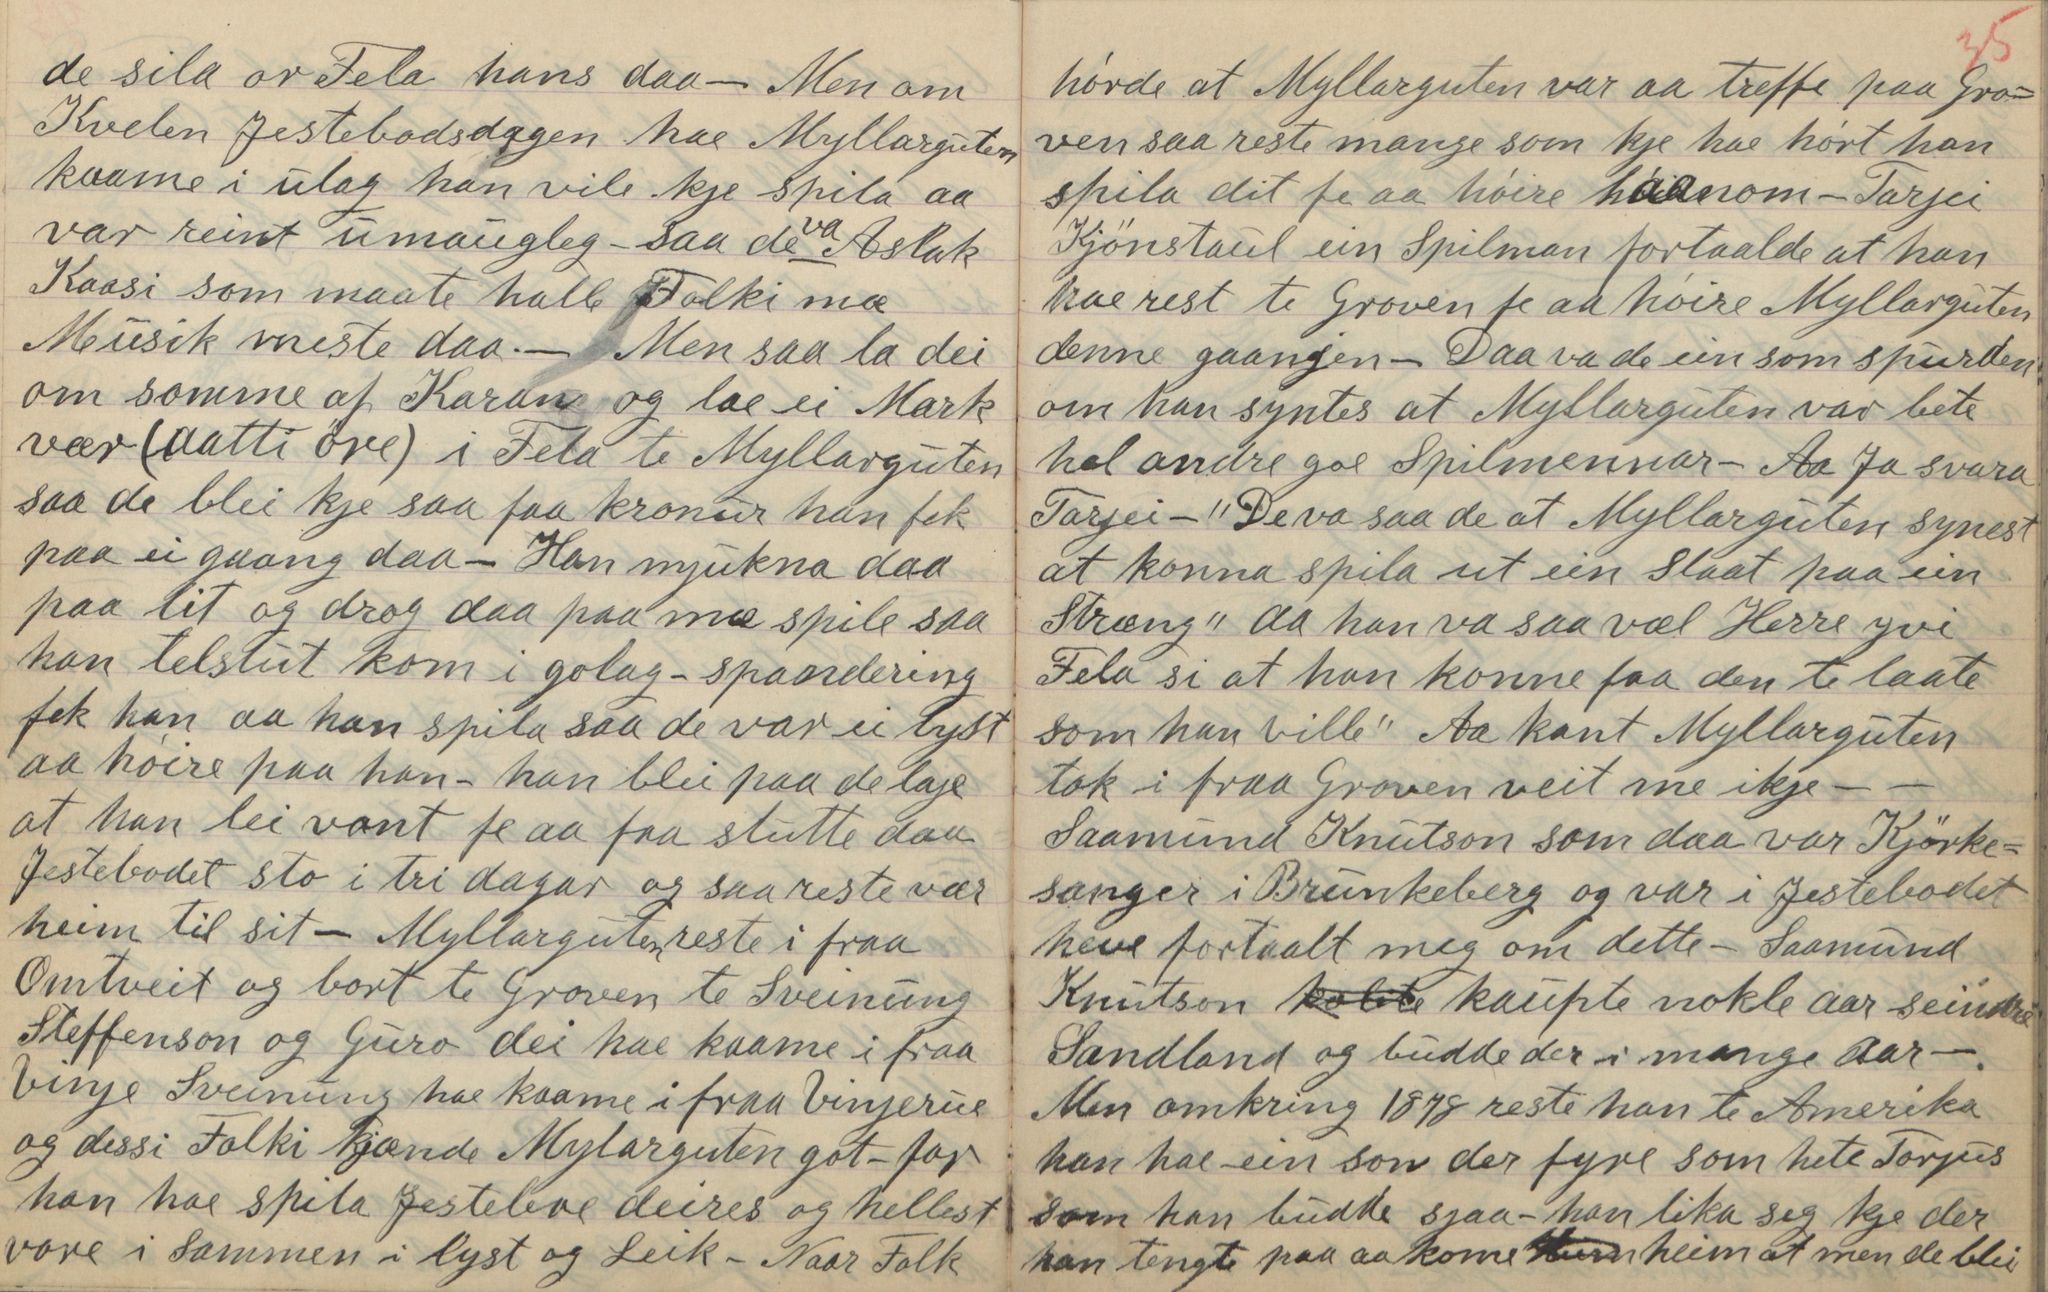 de sila or Fela hans daa — Men om
Kvelen Jestebodsdagen hae Myllarguten
kaame i ulag han vile kje spila aa
var reint umaugleg – saa de va Aslak
Kaasi som maate halle Folki mæ
Musik meste daa. — Men saa la dei
om somme af Karan og lae ei Mark
vær (aatti öre) i Fela te Myllarguten
saa de blei kje saa faa kronur han fek
paa ei gaang daa — Han mjukna daa
paa lit og drog daa paa mæ spile saa
han telslut kom i golag – spandering
fek han aa han spila saa de var ei lyst
aa höire paa han – han blei paa de laje
at han lei vont fe aa faa slutte daa
Jestebodet sto i tri dagar og saa reste vær
heim til sit — Myllarguten reste i fraa
Omtveit og bort te Groven te Sveinung
Steffenson og Guro dei hae kaame i fraa
Vinje Sveinung hae kaame i fraa Vinjerue
og dessi Folki kjænde Mylarguten got – for
han hae spila Jestebore deires og hellest
vore i Sammen i lyst og Leik – Naar Folk
35
hörde at Myllarguten var aa treffe paa Gro=
ven saa reste mange som kje hae hört han
spila dit fe aa höire haanom — Tarjei
Kjönstaul ein Spilman fortaalde at han
hae rest te Groven fe aa höire Myllarguten
denne gaangjen — Daa va de ein som spurden
om han syntes at Myllarguten var bete
hel andre goe Spilmennar — Aa Ja svara
Tarjei — "De va saa de at Myllarguten synest
at konna spila ut ein Slaat paa ein
Stræng" aa han va saa væl Herre yvi
Fela si at han konne faa den te laate
som han ville" Aa kant Myllarguten
tok i fraa Groven veit me ikje — —
Saamund Knutson som daa var Kjörke=
sanger i Brunkeberg og var i Jestebodet
heve fortaalt meg om dette — Saamund
Knutson kaupte nokle aar seindre
Sandland og budde der i mange Aar —.
Men omkring 1878 reste han te Amerika
han hae ein son der fyre som hete Torjus
som han budde sjaa – han lika seg kje der
han tengte paa aa kome heim at men de blei